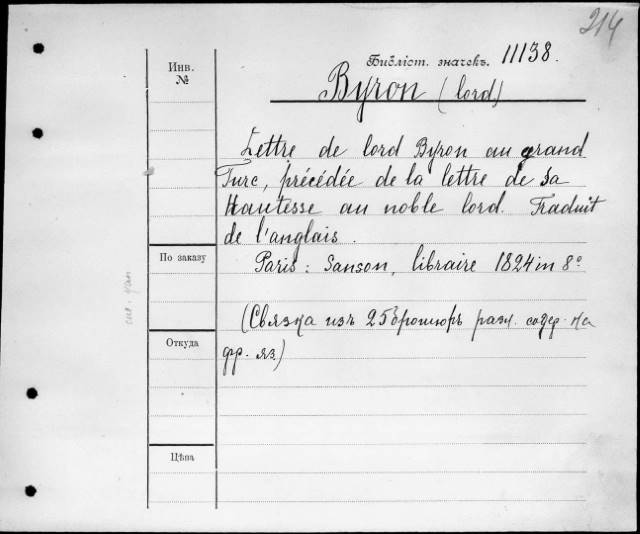 214
Инв. №
Библіот. значекъ. 11138.
Byron (lord)
Lettre de lord Byron au grand
Turc, précédée de la lettre de Sa
Hautesse au noble lord. Traduit
de l'anglais.
По заказу
Paris: Sanson, libraire 1824 in 8°
(Связка изъ 25 брошюръ разл. содер. на
Откуда
фр. яз.)
Цѣна